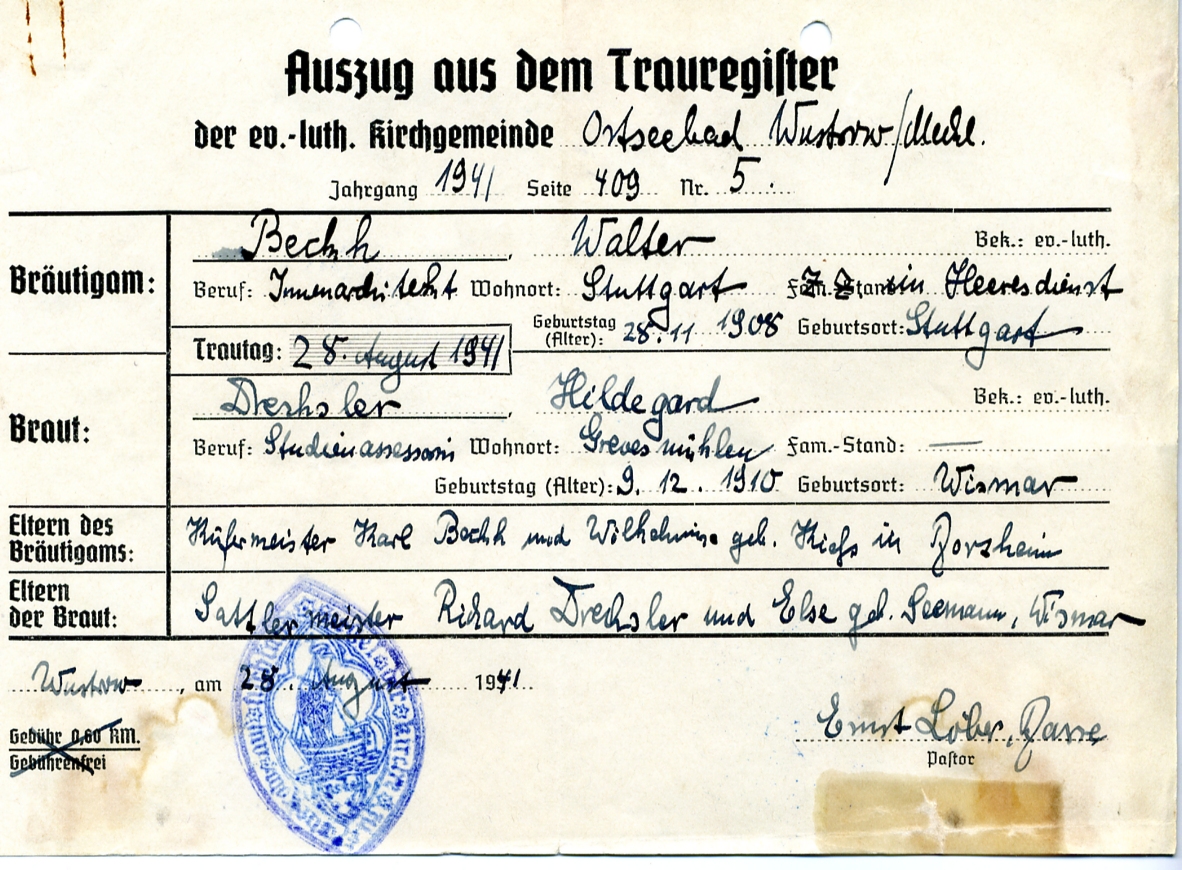 Auszug aus dem Trauregister
der ev.-luth. Kirchgemeinde Ostseebad Wustrow/Meckl.
Jahrgang 1941 Seite 409 Nr. 5.
Bräutigam:
Bechh, Walter Bek.: ev.-luth.
Beruf: Innenarchitekt Wohnort: Stuttgart Fam.-Stand in Heeresdienst
Geburtstag (Alter): 28.11 1908 Geburtsort: Stuttgart
Trautag: 28. August 1941
Braut:
Drechsler, Hildegard Bek.: ev.-luth.
Beruf: Studienassessorin Wohnort: Grevesmühlen Fam.-Stand: —
Geburtstag (Alter): 9. 12. 1910 Geburtsort: Wismar
Eltern des Bräutigams: Küfermeister Karl Bechh und Wilhelmine geb. in
Eltern der Braut: Sattlermeister Richard Drechsler und Else geb. Seemann, Wismar
Wustrow, am 28. August 1941
Gebühr 0,60 RM.
Gebührenfrei
Ernst Löber,
Pastor